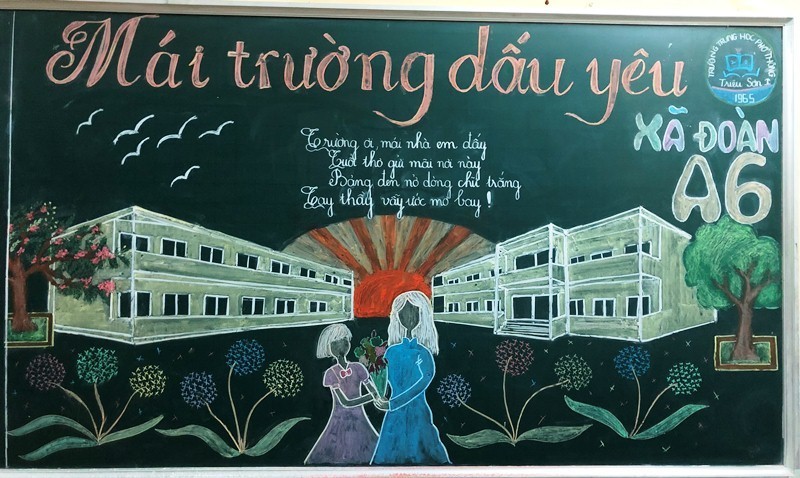 Mái trường dấu yêu
TRƯỜNG TRUNG HỌC PHỔ THÔNG
Triệu Sơn I
1965
XÃ ĐOÀN
A6
Trường ơi, mái nhà em đấy
Tuổi thơ giữ mãi nơi này
Bảng đen nở dòng chữ trắng
Tay thầy vẫy ước mơ bay!